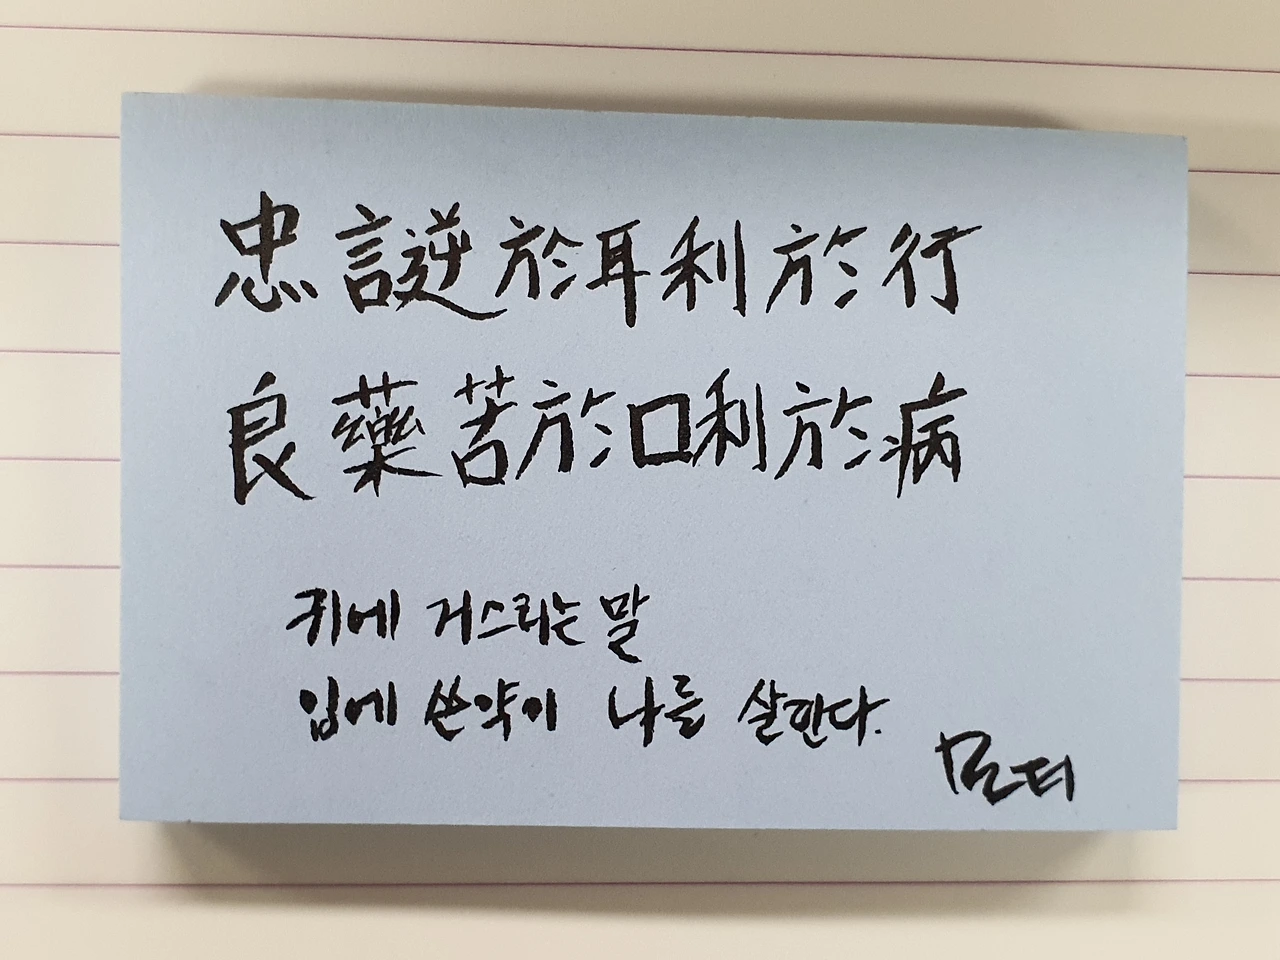 忠言逆於耳利於行
良藥苦於口利於病
귀에 거스리는 말
입에 쓴약이 나를 살린다.